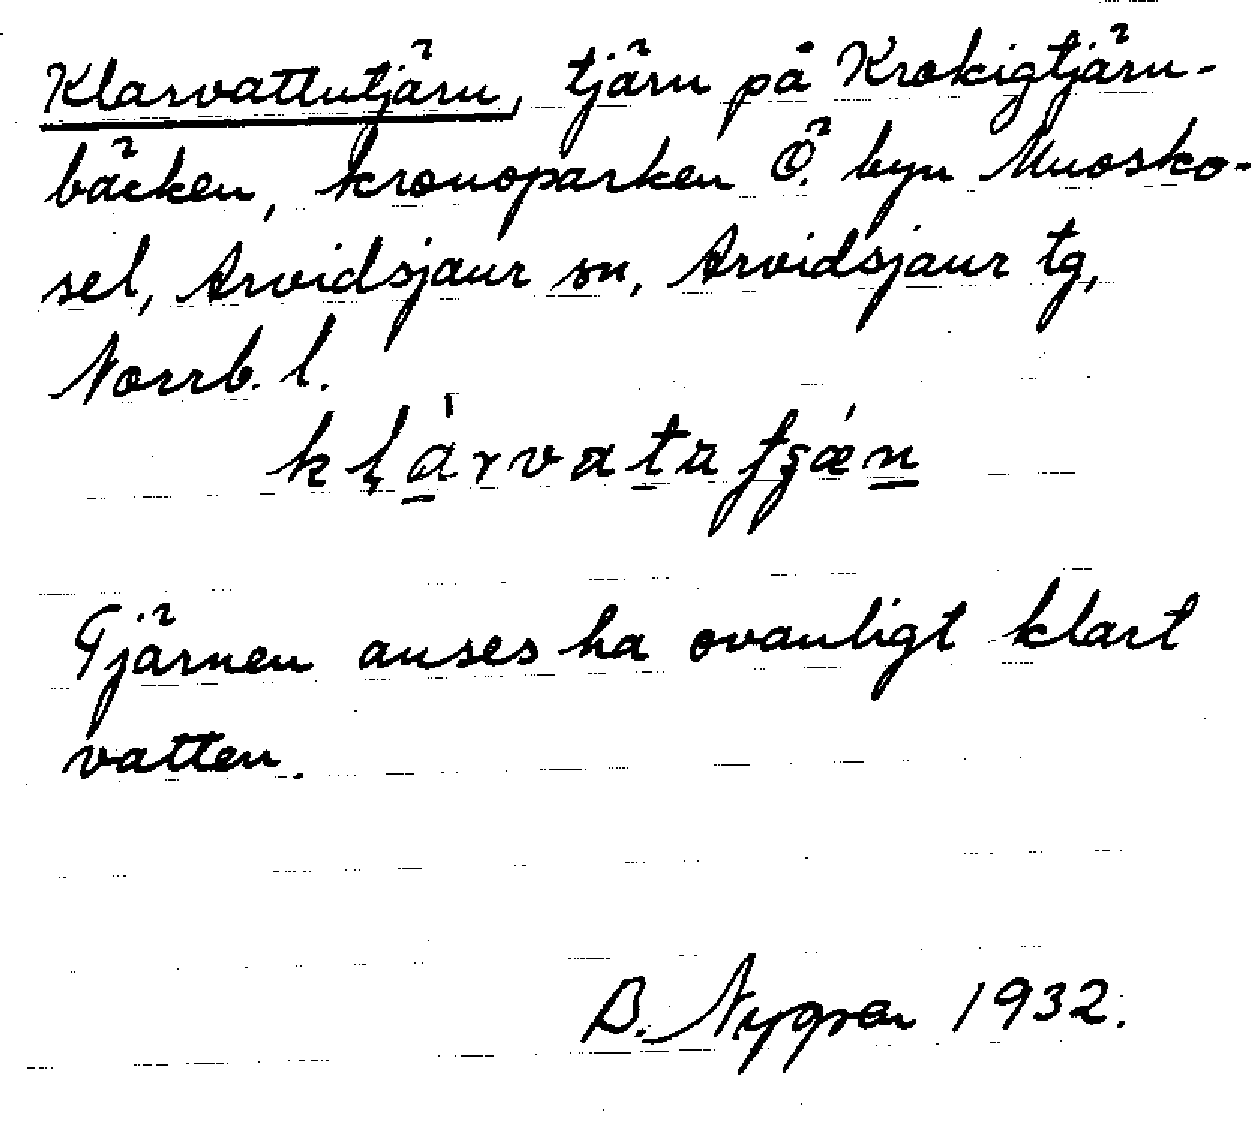 Klarvattutjärn, tjärn på Krokigtjärn-
bäcken, kronoparken Ö. byn Muosko-
sel, Arvidsjaur sn, Arvidsjaur tg,
Norrb. l.
Tjärnen anses ha ovanligt klart
vatten.
B. Nygren 1932.